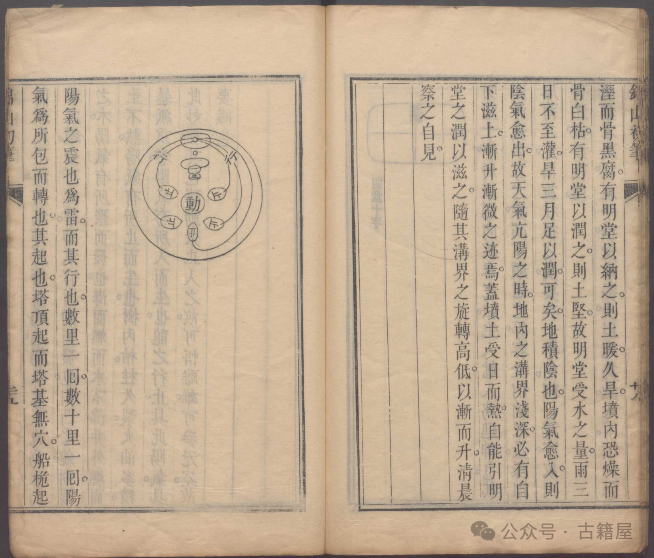 溼而骨黑腐。有明堂以納之。則土暖。久旱。墳內恐燥而
骨白枯。有明堂以潤之。則土堅。故明堂受水之量。雨三
日不至灌。旱三月足以潤。可矣。地積陰也。陽氣愈入。則
陰氣愈出。故天氣亢陽之時。地內之溝界淺深。必有自
下滋上。漸升漸微之迹焉。蓋墳土受日而熱。自能引明
堂之潤以滋之。隨其溝界之旋轉高低。以漸而升。清晨
察之自見。
動
止
止
止
止
陽氣之震也為雷。而其行也。數里一囘。數十里一囘。陽
氣為所包而轉也。其起也。塔頂起而塔基無穴。船桅起
公众号 · 古籍屋